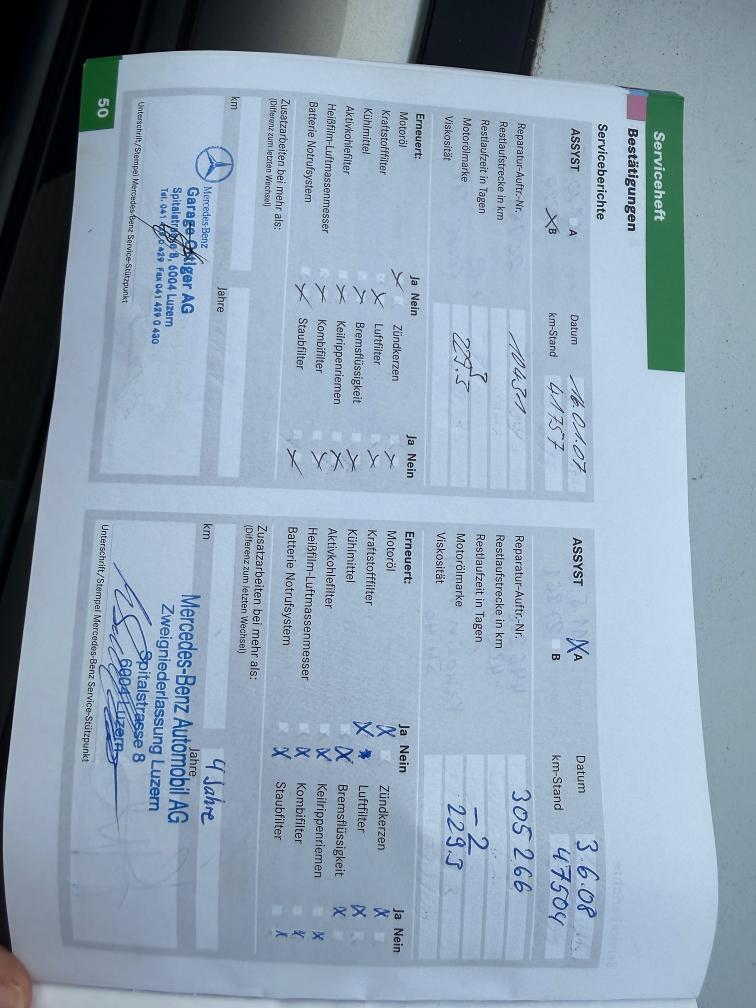 Serviceheft
Bestätigungen
Serviceberichte
ASSYST A Datum 16.01.07
X B km-Stand 41757
Reparatur-Auftr.-Nr. 10431
Restlaufstrecke in km
Restlaufzeit in Tagen
Motorölmarke
Viskosität 229.5
Erneuert: Ja Nein Ja Nein
Motoröl X Zündkerzen X
Kraftstofffilter X Luftfilter X
Kühlmittel X Bremsflüssigkeit X
Aktivkohlefilter X Keilrippenriemen X
Heißfilm-Luftmassenmesser X Kombifilter X
Batterie Notrufsystem X Staubfilter X
Zusatzarbeiten bei mehr als:
(Differenz zum letzten Wechsel)
km Jahre
Mercedes-Benz
Garage AG
Spitalstrasse 8, 6004 Luzern
Tel. 041 429 0 429 Fax 041 429 0 430
Unterschrift/Stempel Mercedes-Benz Service-Stützpunkt
50
ASSYST X A Datum 3.6.08
B km-Stand 47504
Reparatur-Auftr.-Nr. 305 266
Restlaufstrecke in km
Restlaufzeit in Tagen – 2
Motorölmarke 229.5
Viskosität
Erneuert: Ja Nein Ja Nein
Motoröl X Zündkerzen X
Kraftstofffilter X Luftfilter X
Kühlmittel X Bremsflüssigkeit X
Aktivkohlefilter X Keilrippenriemen X
Heißfilm-Luftmassenmesser X Kombifilter X
Batterie Notrufsystem X Staubfilter X
Zusatzarbeiten bei mehr als:
(Differenz zum letzten Wechsel)
km Jahre 4 Jahre
Mercedes-Benz Automobil AG
Zweigniederlassung Luzern
Spitalstrasse 8
6004 Luzern
Unterschrift/Stempel Mercedes-Benz Service-Stützpunkt